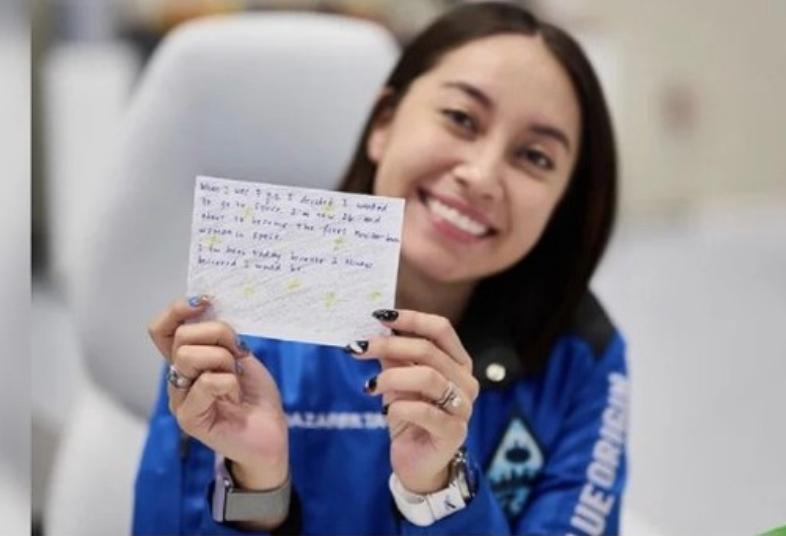 When I was 7 y.o. I decided I wanted
to go to space. I'm now 26 and
about to become the first Mexican born
woman in space.
I am here today because I always
believed I would be.
BLUE ORIGIN